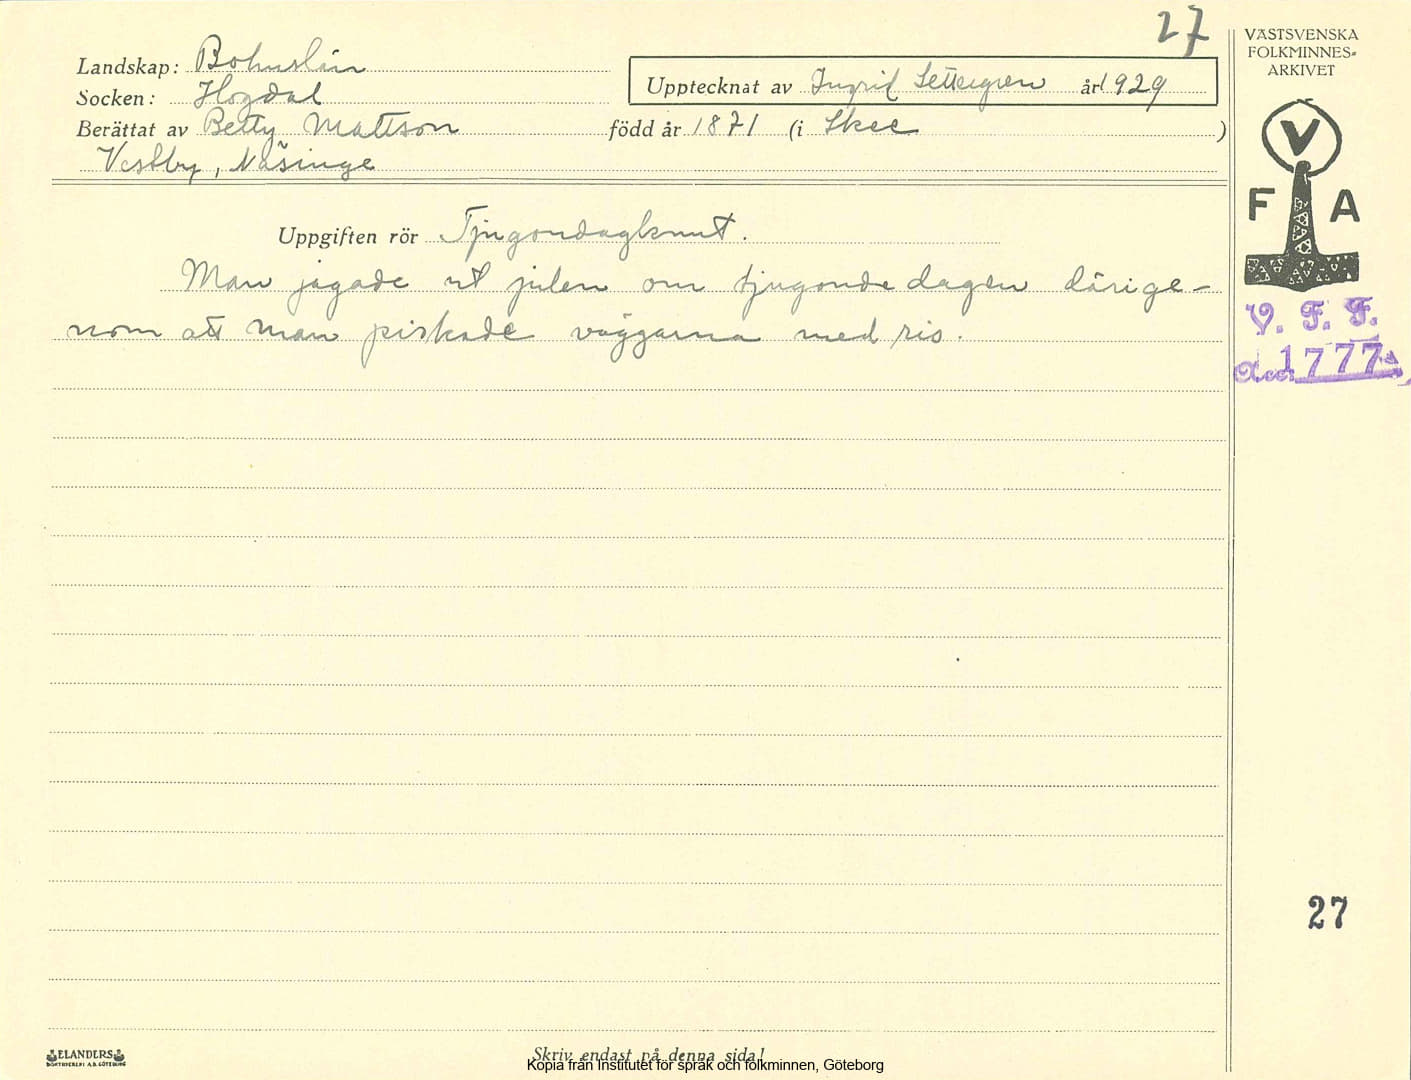 27
VÄSTSVENSKA
FOLKMINNES-
ARKIVET
Landskap: Bohuslän
Socken: Hogdal
Upptecknat av Ingrid Settergren år 1929
Berättat av Betty Mattson född år 1871 (i Skee )
Vestby, Näsinge
V
F A
Uppgiften rör Tjugondagknut.
Man jagade ut julen om tjugondedagen därige-
nom att man piskade väggarna med ris.
V. F. F.
Acc. 1777
27
ELANDERS
BOKTRYCKERI A.B. GÖTEBORG
Skriv endast på denna sida!
Kopia från Institutet för språk och folkminnen, Göteborg